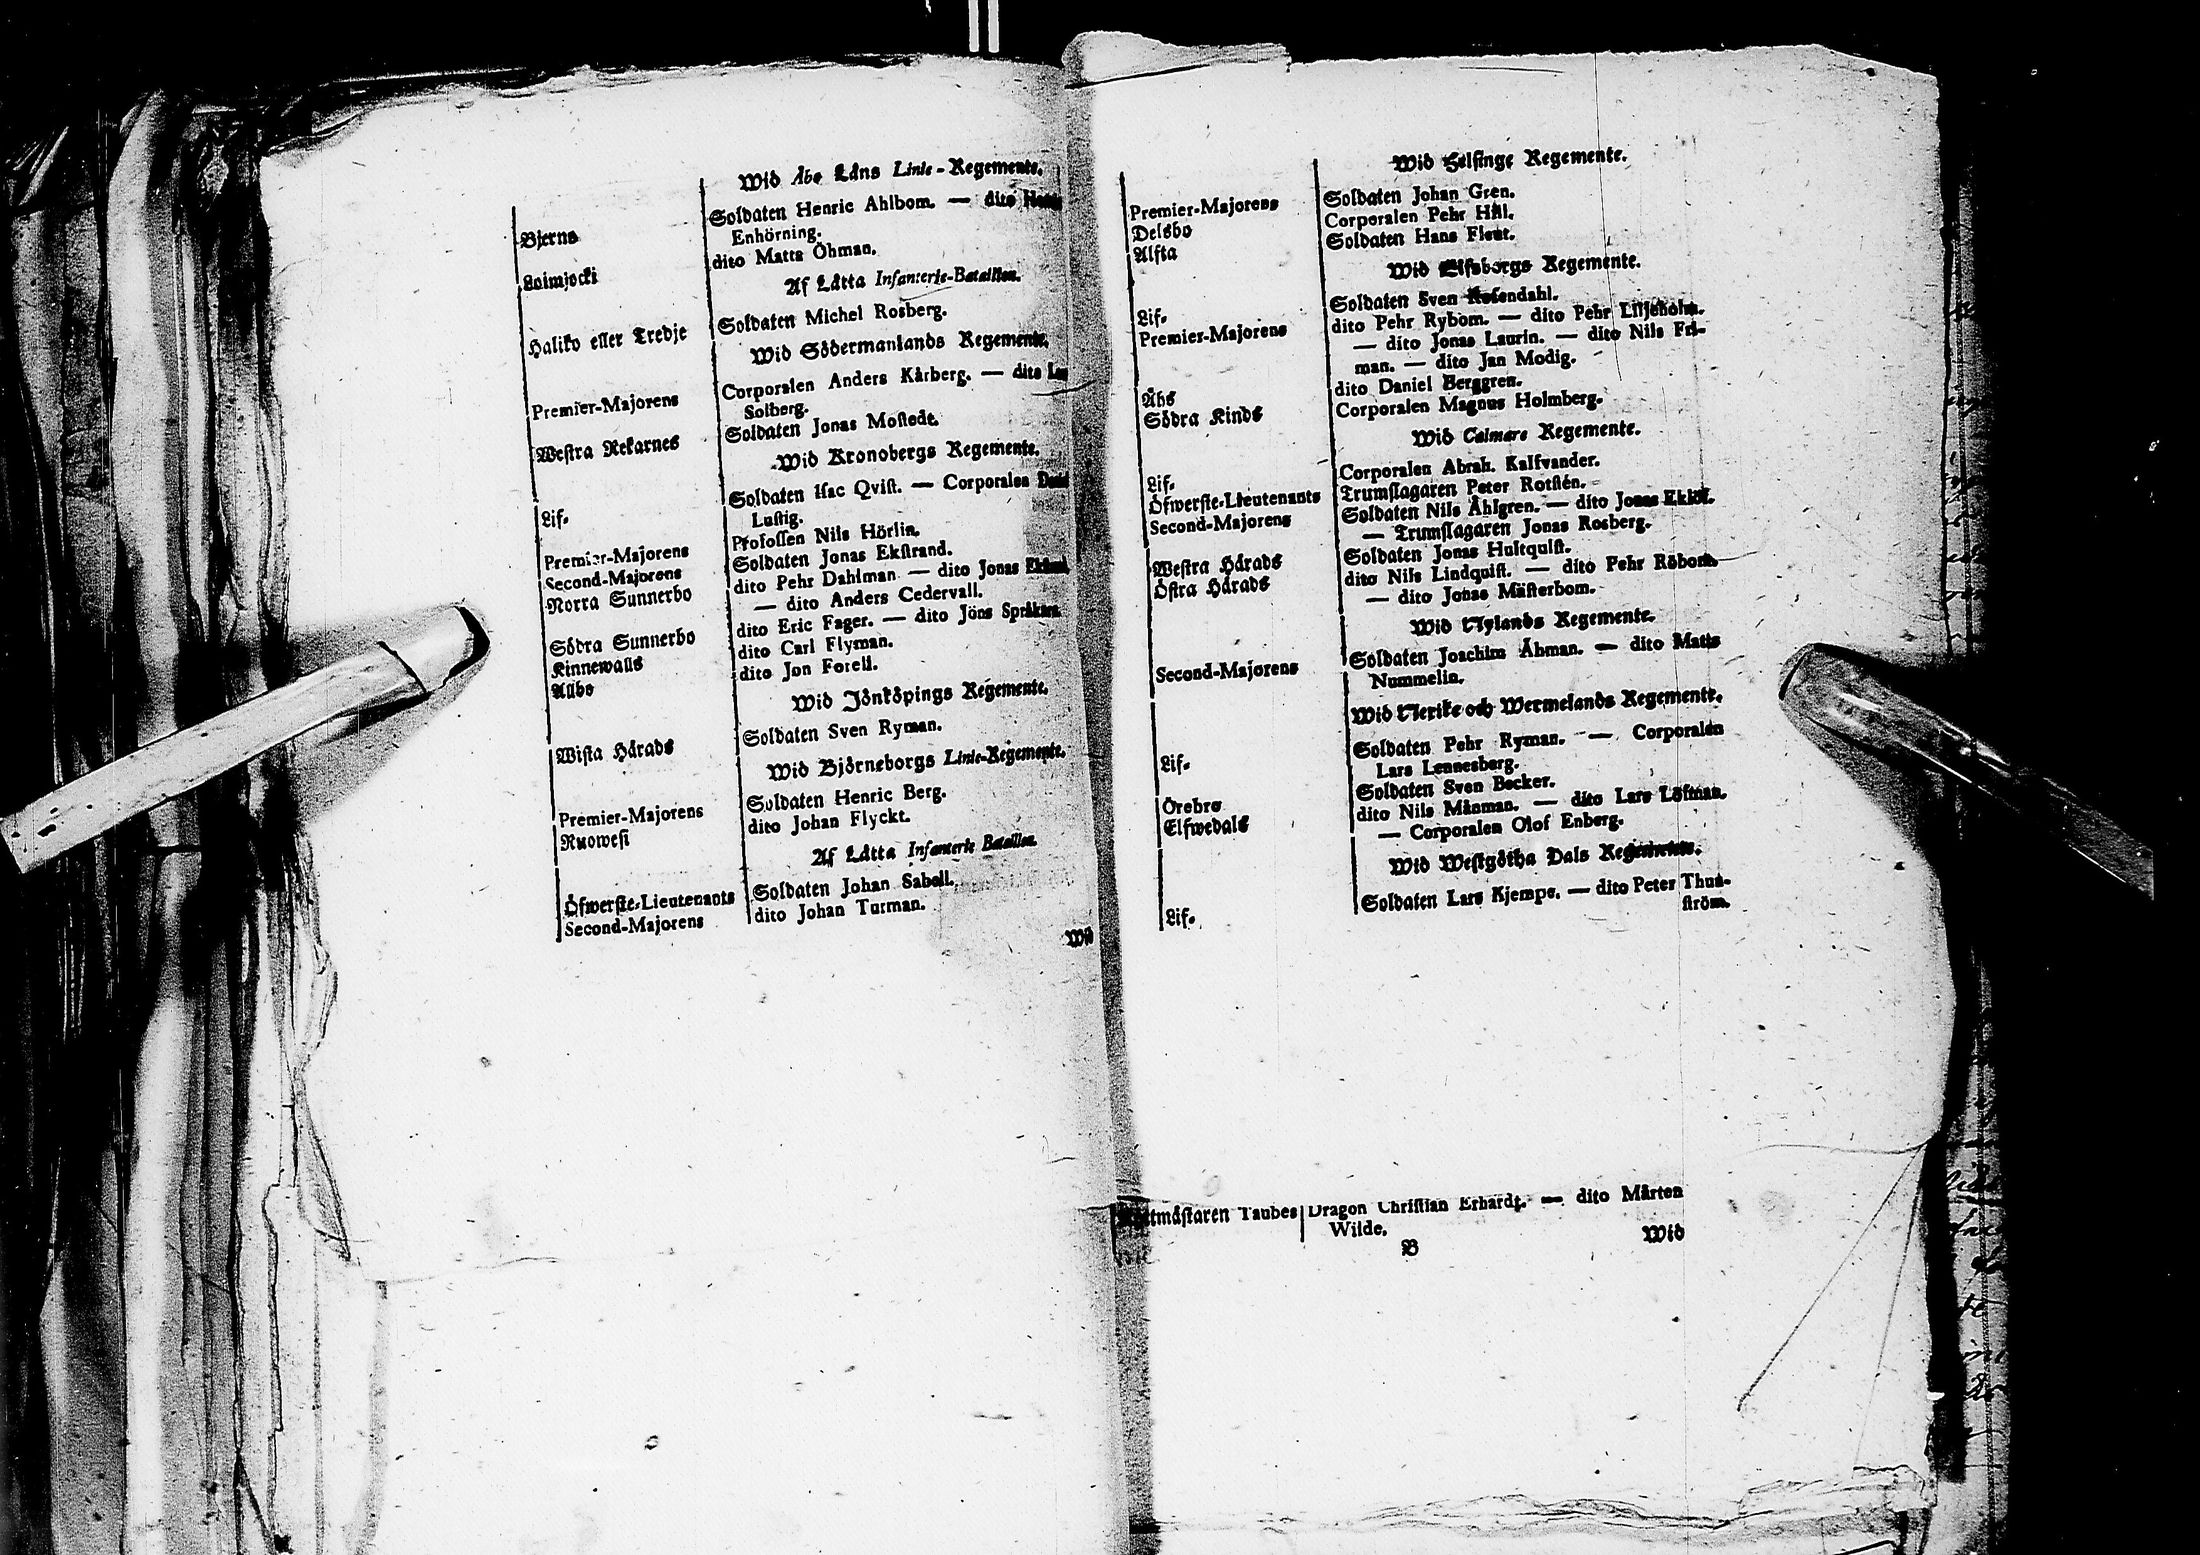 Wid Åbo Läns Linie-Regemente.
Bjerno Soldaten Henric Ahlbom. — dito
Enhörning.
Loimjocki dito Matts Öhman.
Af Lätta Infanterie-Bataillon.
Haliko eller Tredje Soldaten Michel Rosberg.
Wid Södermanlands Regemente.
Premier-Majorens Corporalen Anders Kårberg. — dito
Solberg.
Westra Rekarnes Soldaten Jonas Mostedt.
Wid Kronobergs Regemente.
Lif- Soldaten Isac Qvist. — Corporalen
Lustig.
Premier-Majorens Profossen Nils Hörlin.
Second-Majorens Soldaten Jonas Ekstrand.
Norra Sunnerbo dito Pehr Dahlman — dito Jonas
— dito Anders Cedervall.
Södra Sunnerbo dito Eric Fager. — dito Jöns
Kinnewalls dito Carl Flyman.
Allbo dito Jon Forell.
Wid Jönköpings Regemente.
Wista Härads Soldaten Sven Ryman.
Wid Björneborgs Linie-Regemente.
Premier-Majorens Soldaten Henric Berg.
Ruowesi dito Johan Flyckt.
Af Lätta Infanterie Bataillon.
Öfwerste-Lieutenants Soldaten Johan Sabell.
Second-Majorens dito Johan Turman.
Wid
Wid Helsinge Regemente.
Premier-Majorens Soldaten Johan Gren.
Delsbo Corporalen Pehr Hill.
Alfta Soldaten Hans Fleut.
Wid Elfsborgs Regemente.
Lif- Soldaten Sven Rosendahl.
Premier-Majorens dito Pehr Rybom. — dito Pehr Liljeholm.
— dito Jonas Laurin. — dito Nils Fri-
man. — dito Jan Modig.
Ahs dito Daniel Berggren.
Södra Kinds Corporalen Magnus Holmberg.
Wid Calmare Regemente.
Lif- Corporalen Abrah. Kalfvander.
Öfwerste-Lieutenants Trumslagaren Peter Rotstén.
Second-Majorens Soldaten Nils Åhlgren. — dito Jonas Eklöf.
— Trumslagaren Jonas Rosberg.
Westra Härads Soldaten Jonas Hultquist.
Östra Härads dito Nils Lindquist. — dito Pehr Röbom.
— dito Jonas Mästerbom.
Wid Nylands Regemente.
Second-Majorens Soldaten Joachim Åhman. — dito Matts
Nummelin.
Wid Nerike och Wermelands Regemente.
Lif- Soldaten Pehr Ryman. — Corporalen
Lars Lennesberg.
Örebro Soldaten Sven Becker.
Elfwedals dito Nils Månman. — dito Lars Löfman.
— Corporalen Olof Enberg.
Wid Westgötha Dals Regemente.
Lif- Soldaten Lars Kjempe. — dito Peter Thun-
ström.
Dragon Christian Erhardt. — dito Mårten
Taubes Wilde.
B Wid